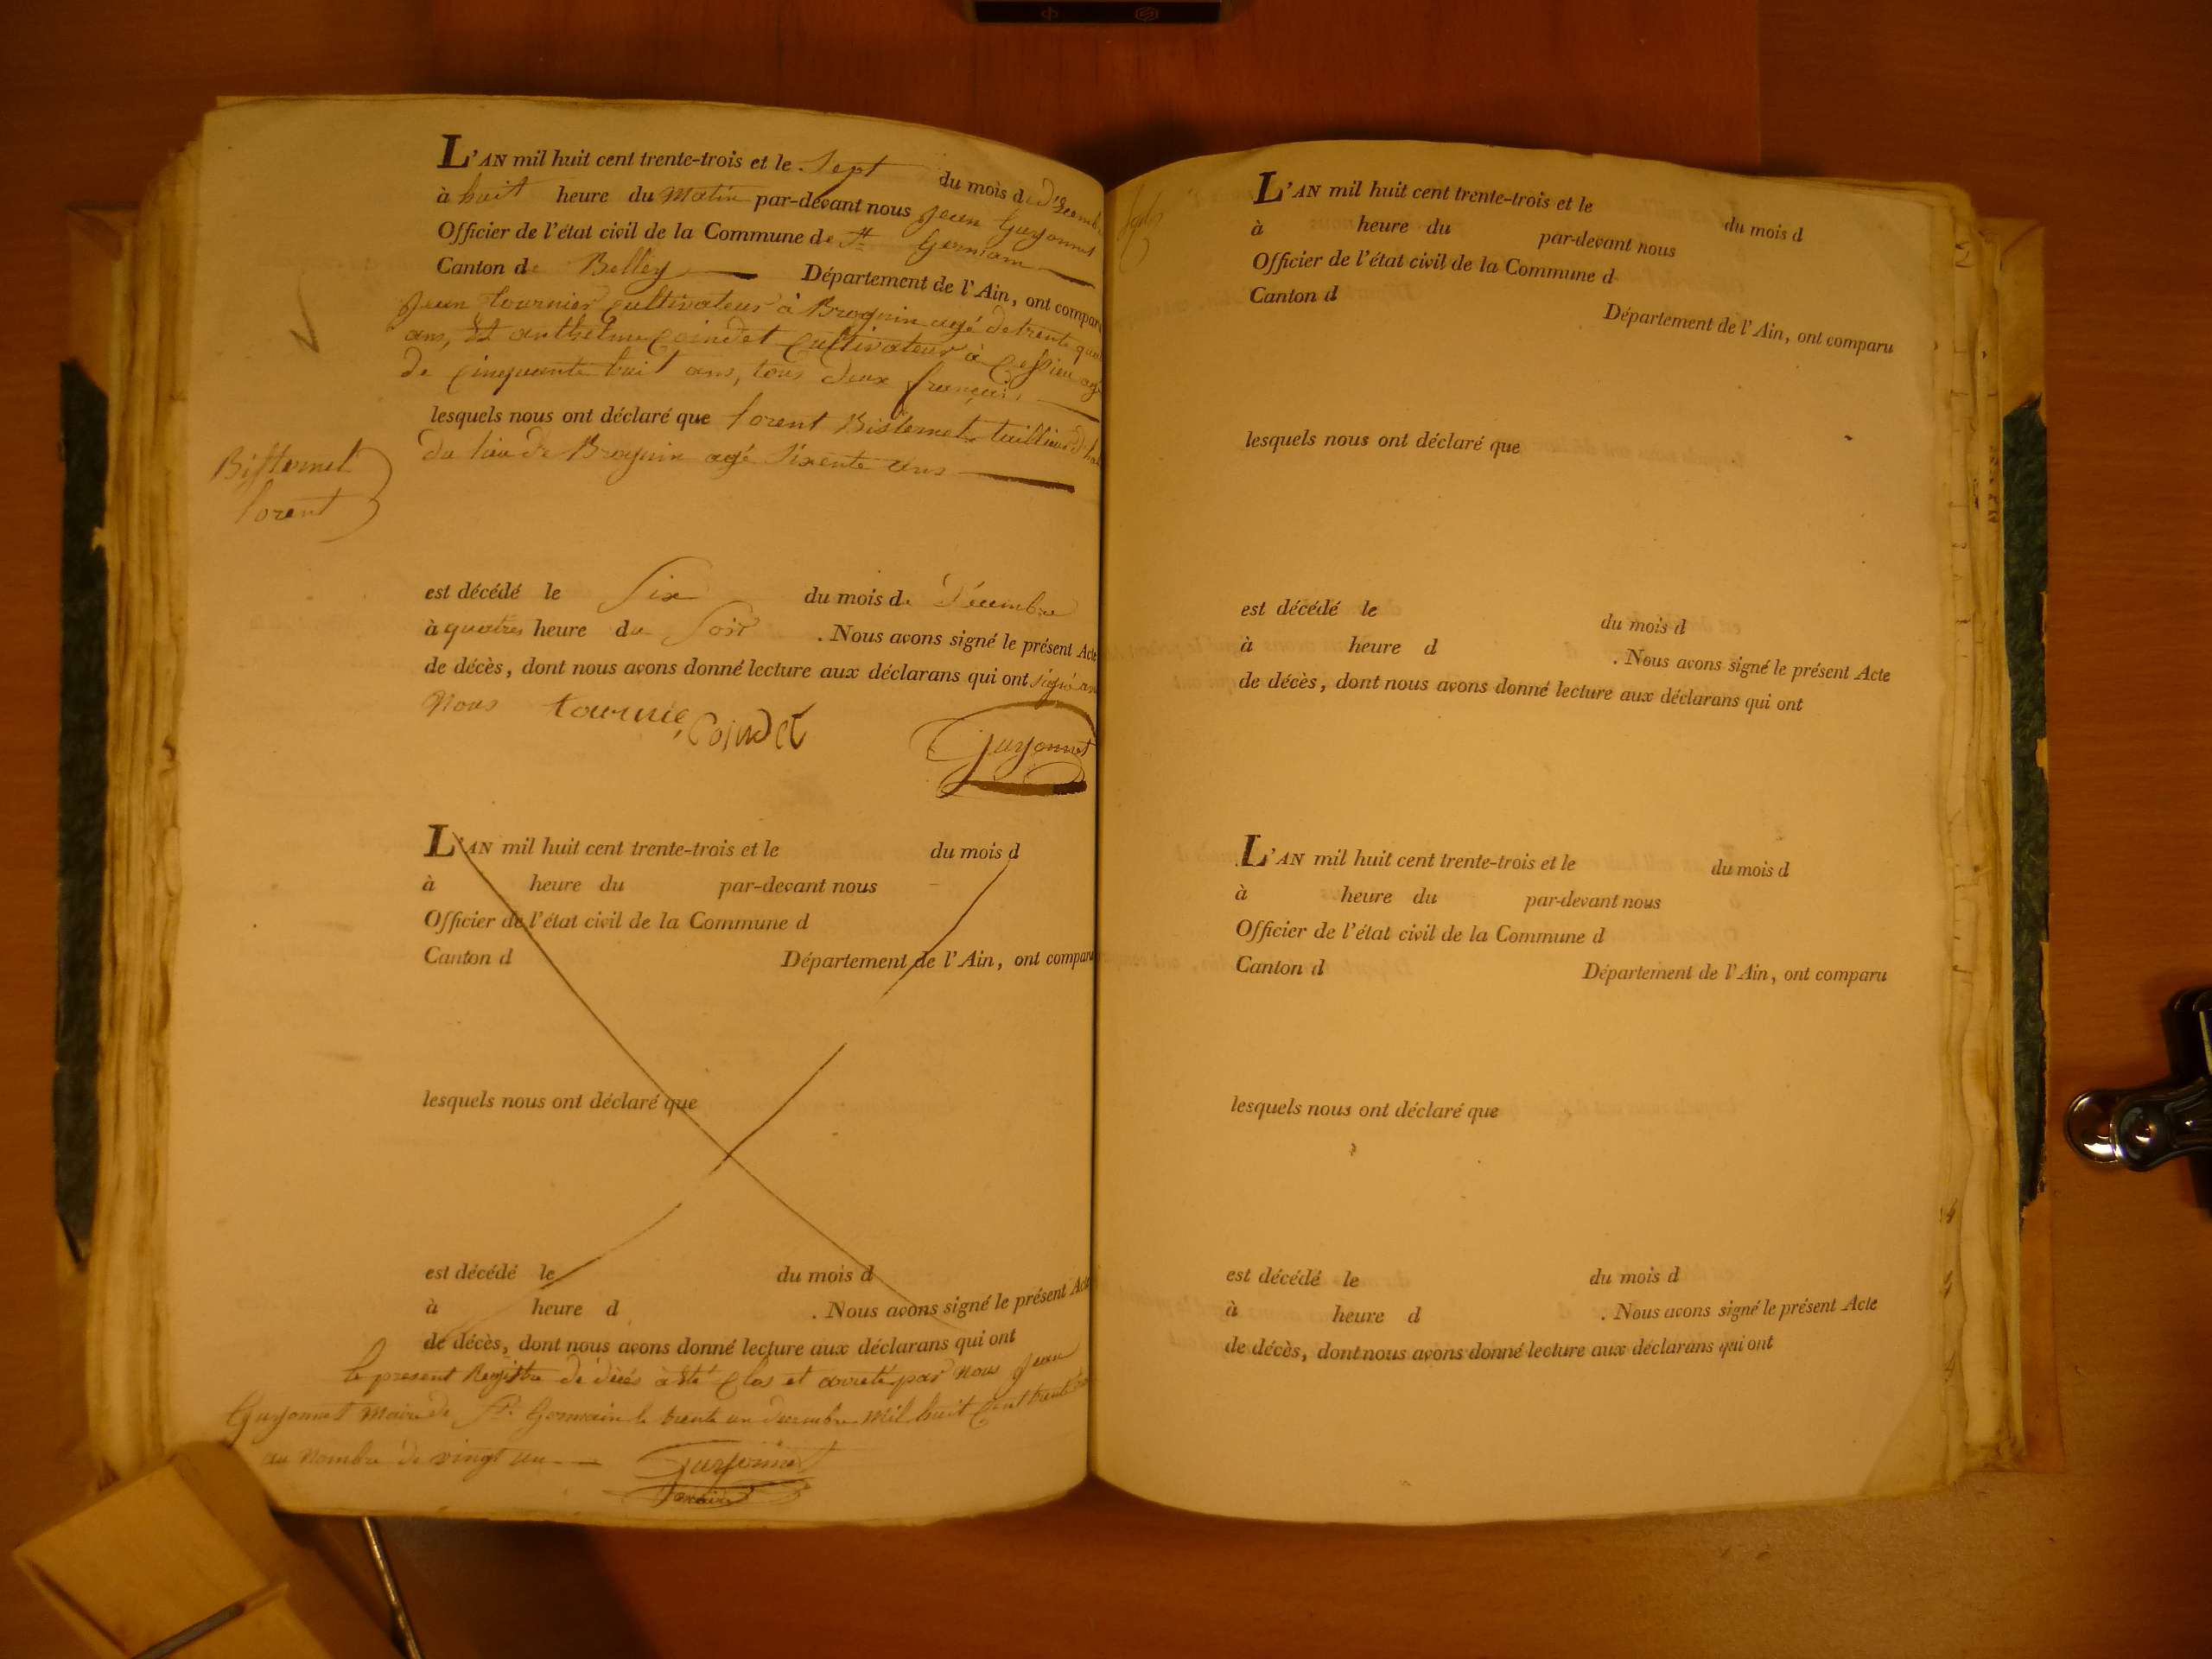 L'AN mil huit cent trente-trois et le Sept du mois de Décembre
à huit heure du Matin par-devant nous Jean Guyonnet
Officier de l'état civil de la Commune de St Germain
Canton de Belley Département de l'Ain, ont compar
Jean tournier Cultivateur à Brognin agé de trente
ans, Et anthelme Coindet Cultivateur à Cessieu agé
de Cinquante huit ans, tous deux français
lesquels nous ont déclaré que lorent Bisternet tailleur
du lieu de Brognin agé Sixente ans
Bisternet
lorent
est décédé le Six du mois de Décembre
à quatres heure du Soir . Nous avons signé le présent Acte
de décès, dont nous avons donné lecture aux déclarans qui ont signé
Nous tournie Coindet
Guyonnet
L'AN mil huit cent trente-trois et le du mois d
à heure du par-devant nous
Officier de l'état civil de la Commune d
Canton d Département de l'Ain, ont comparu
lesquels nous ont déclaré que
est décédé le du mois d
à heure d . Nous avons signé le présent Acte
de décès, dont nous avons donné lecture aux déclarans qui ont
le present Registre de décés à été Clos et arreté par nous Jean
Guyonnet Maire de St. Germain le trente un decembre Mil huit Cent trente
au Nombre de vingt un
Guyonnet
L'AN mil huit cent trente-trois et le du mois d
à heure du par-devant nous
Officier de l'état civil de la Commune d
Canton d Département de l'Ain, ont comparu
lesquels nous ont déclaré que
est décédé le du mois d
à heure d . Nous avons signé le présent Acte
de décès, dont nous avons donné lecture aux déclarans qui ont
L'AN mil huit cent trente-trois et le du mois d
à heure du par-devant nous
Officier de l'état civil de la Commune d
Canton d Département de l'Ain, ont comparu
lesquels nous ont déclaré que
est décédé le du mois d
à heure d . Nous avons signé le présent Acte
de décès, dont nous avons donné lecture aux déclarans qui ont